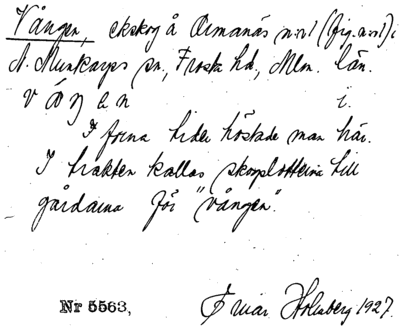 Vången, ekskog å Ormanäs nr 1 (fig. nr 1) i
N. Munkarps sn, Frosta hd, Mlm. län.
v å ŋ e n i.
I forna tider höstade man här.
I trakten kallas skogslotterna till
gårdarna för "vången".
Nr 5563, Ingvar Holmberg 1927.